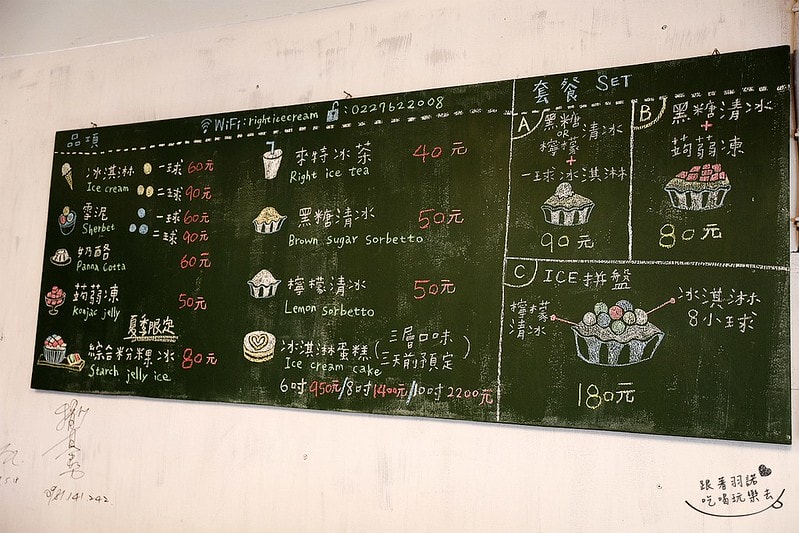 品項
WiFi: righticecream :0227622008
冰淇淋 一球 60元
Ice cream 二球 90元
雪泥 一球 60元
Sherbet 二球 90元
奶酪
Panna Cotta 60元
蒟蒻凍
Konjac jelly 50元
夏季限定
綜合粉粿冰 80元
Starch jelly ice
麥特冰茶 40元
Right ice tea
黑糖清冰 50元
Brown sugar sorbetto
檸檬清冰 50元
Lemon sorbetto
冰淇淋蛋糕(三層口味 三天前預定)
Ice cream cake
6吋950元/8吋1400元/10吋2200元
套餐 SET
A
黑糖 or 檸檬 清冰
+
一球冰淇淋
90元
B
黑糖清冰
+
蒟蒻凍
80元
C ICE拼盤
檸檬清冰
冰淇淋
8小球
180元
0981141242
跟著羽諾
吃喝玩樂去